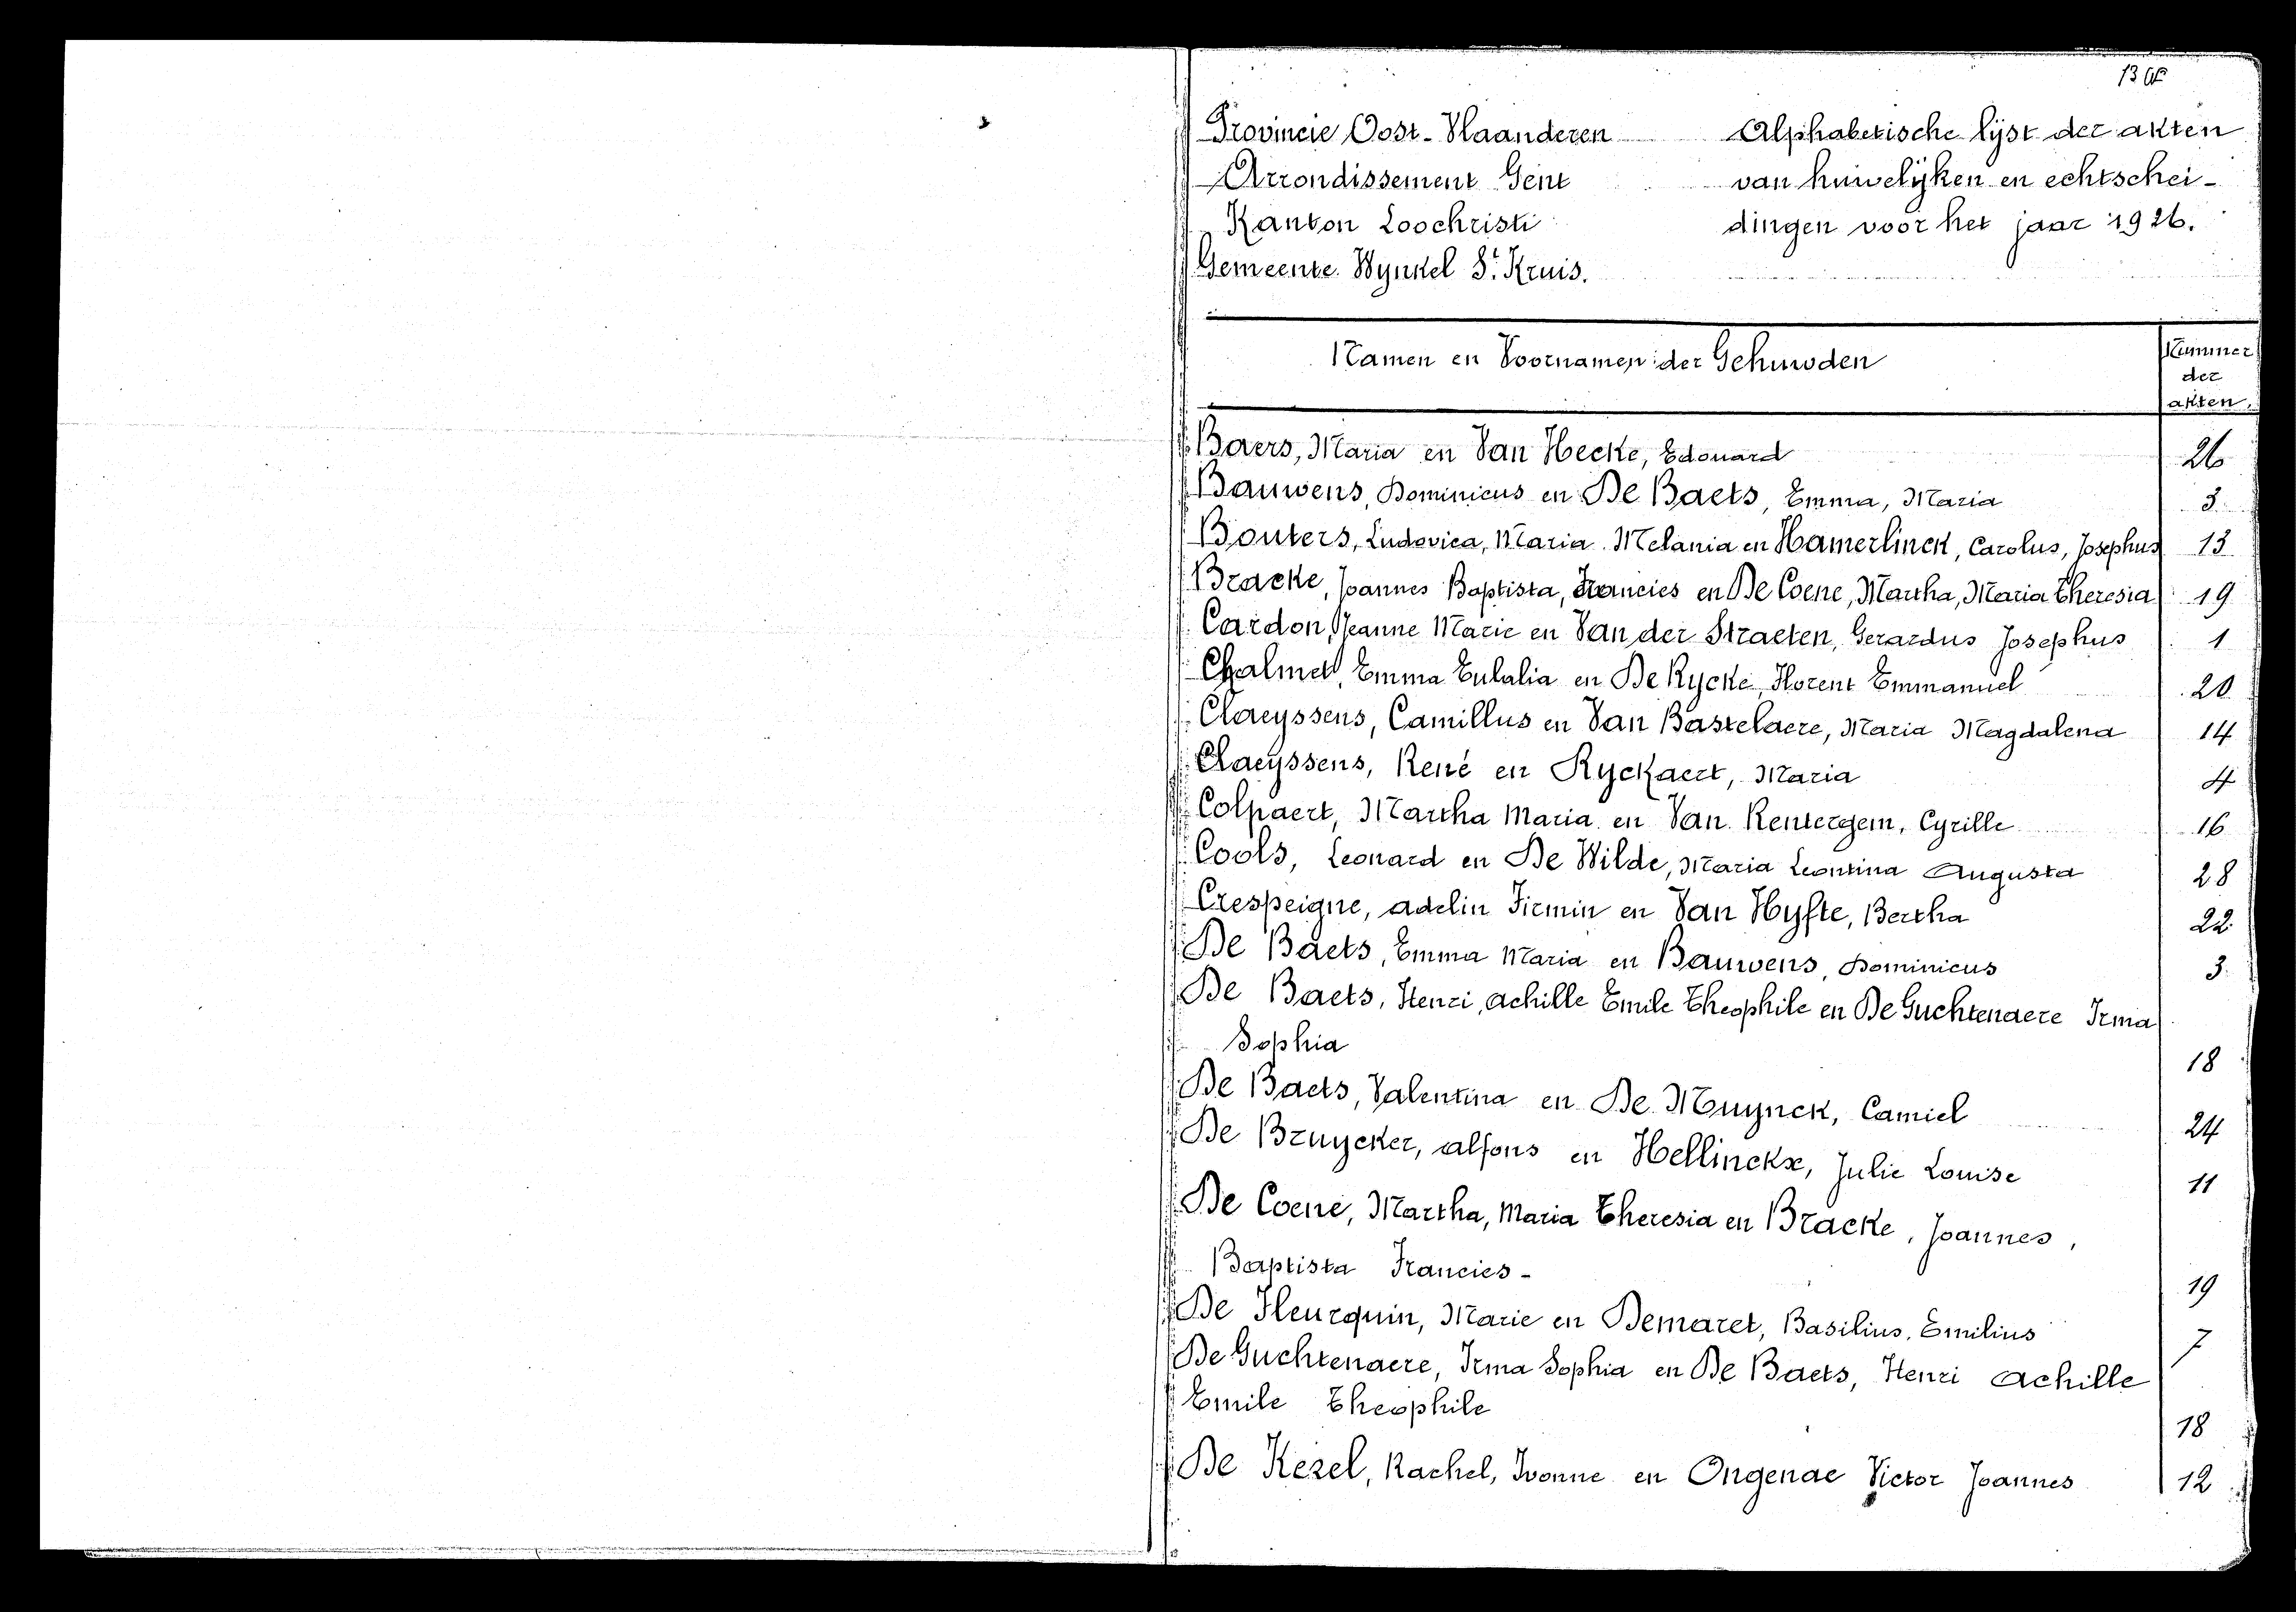 Provincie Oost-Vlaanderen
Arrondissement Gent
Kanton Loochristi
Gemeente Wynkel St Kruis.
Alphabetische lijst der akten
van huwelijken en echtschei-
dingen voor het jaar 1926.
Namen en Voornamen der Gehuwden
Nummer
der
akten.
Baers, Maria en Van Hecke, Edouard 26
Bauwens, Dominicus en De Baets, Emma, Maria 3
Bouters, Ludovica, Maria Melania en Hamerlinck, Carolus, Josephus 13
Bracke, Joannes Baptista, Francies en De Coene, Martha, Maria Theresia 19
Cardon, Jeanne Marie en Van der Straeten, Gerardus Josephus 1
Chalmet, Emma Eulalia en De Rycke, Florent Emmanuel 20
Claeyssens, Camillus en Van Bastelaere, Maria Magdalena 14
Claeyssens, René en Ryckaert, Maria 4
Colpaert, Martha Maria en Van Rentergem, Cyrille 16
Cools, Leonard en De Wilde, Maria Leontina Augusta 28
Crespeigne, Adelin Firmin en Van Hyfte, Bertha 22
De Baets, Emma Maria en Bauwens, Dominicus 3
De Baets, Henri, Achille Emile Theophile en De Guchtenaere Irma
Sophia 18
De Baets, Valentina en De Muynck, Camiel 24
De Bruycker, Alfons en Hellinckx, Julie Louise 11
De Coene, Martha, Maria Theresia en Bracke, Joannes,
Baptista Francies- 19
De Fleurquin, Marie en Demaret, Basilius, Emilius 7
De Guchtenaere, Irma Sophia en De Baets, Henri Achille
Emile Theophile 18
De Kezel, Rachel, Ivonne en Ongenae Victor Joannes 12